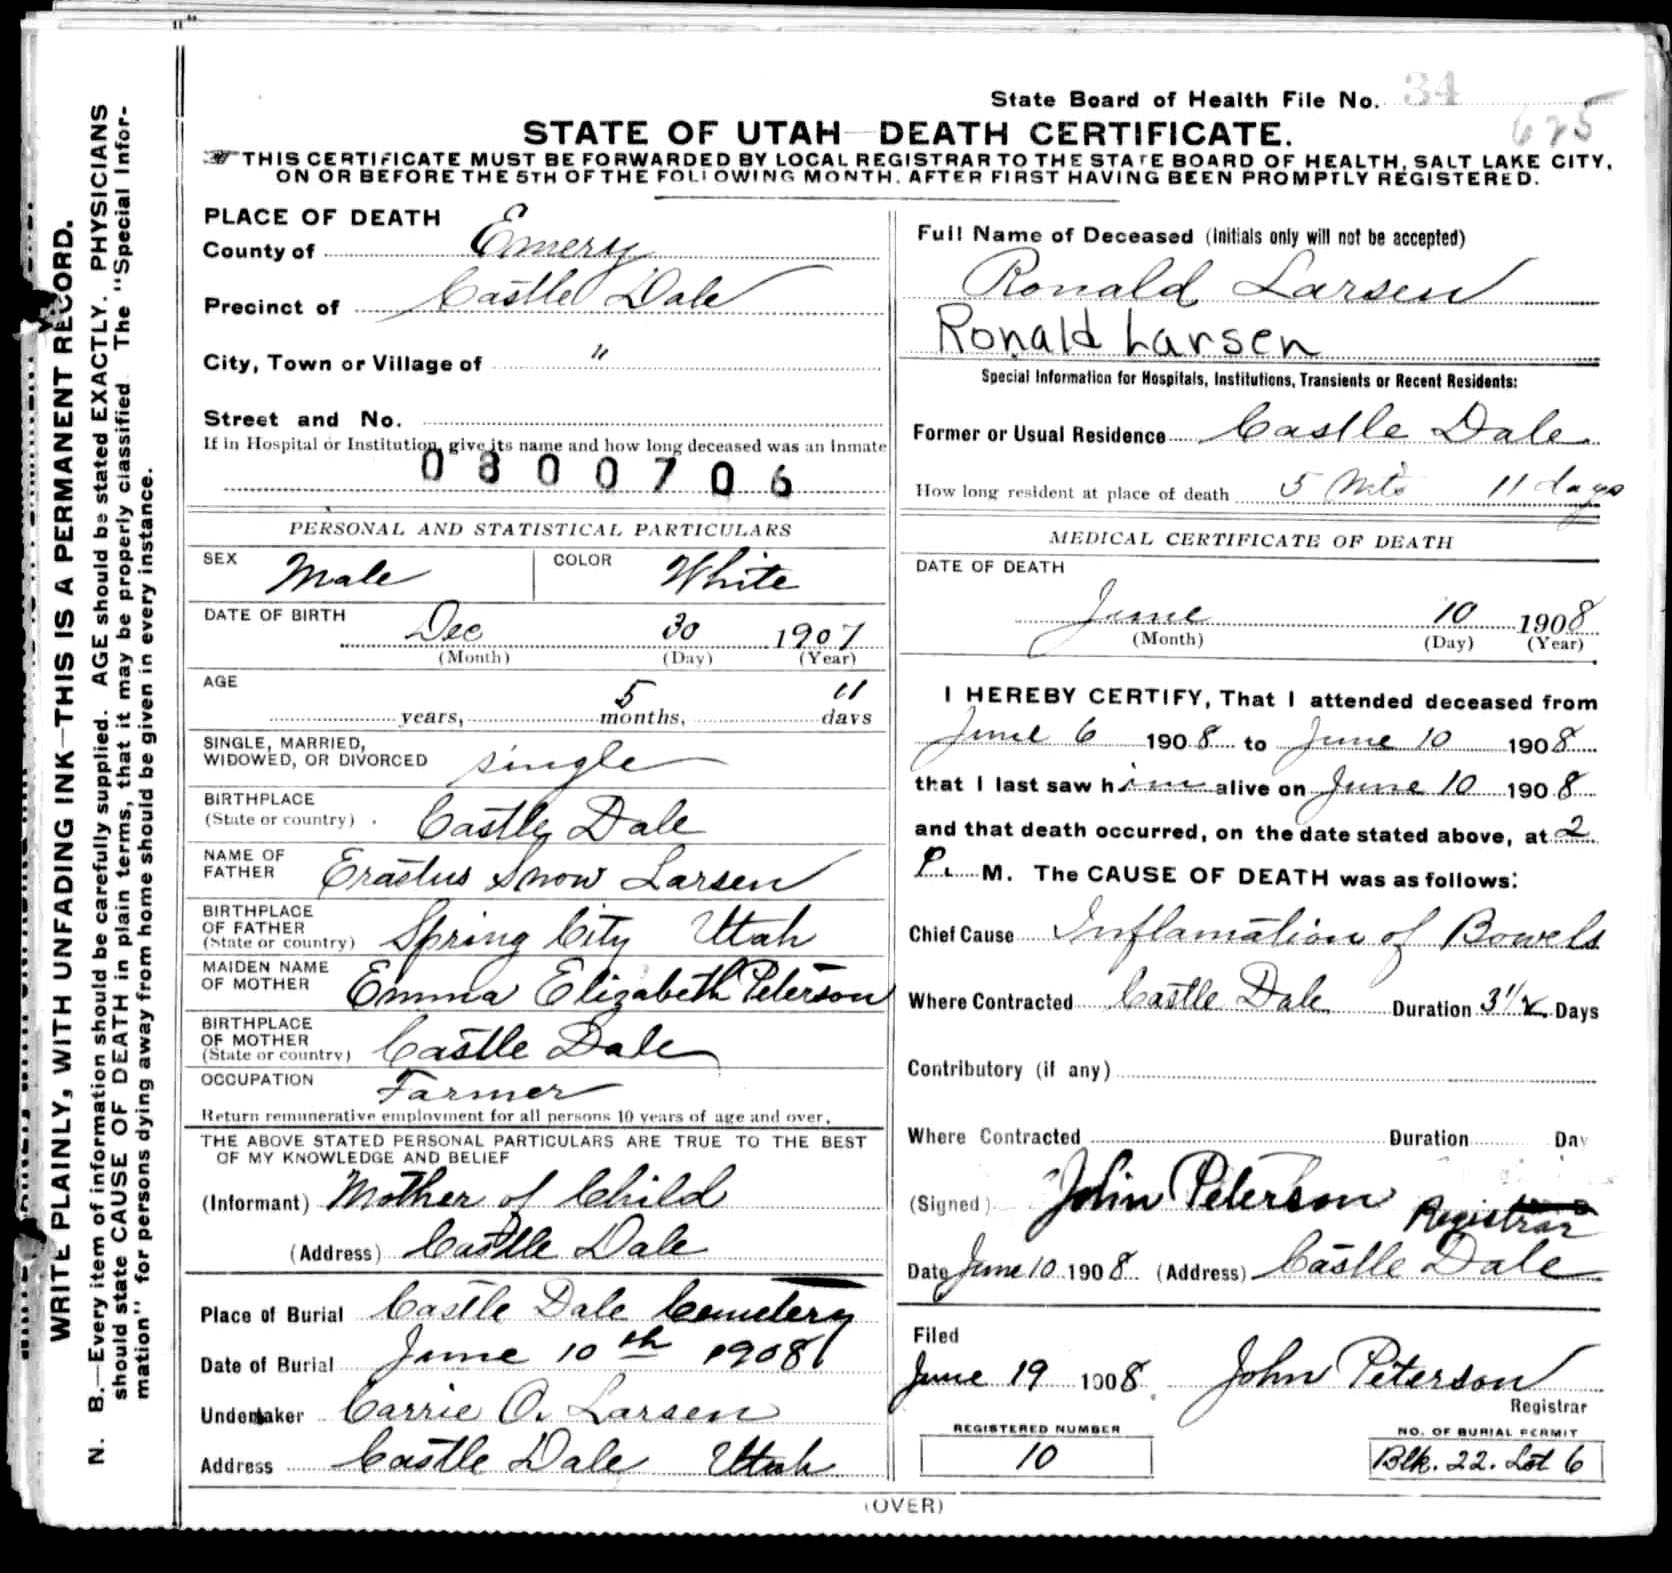 State Board of Health File No. 34
625
STATE OF UTAH—DEATH CERTIFICATE.
THIS CERTIFICATE MUST BE FORWARDED BY LOCAL REGISTRAR TO THE STATE BOARD OF HEALTH, SALT LAKE CITY,
ON OR BEFORE THE 5TH OF THE FOLLOWING MONTH, AFTER FIRST HAVING BEEN PROMPTLY REGISTERED.
WRITE PLAINLY, WITH UNFADING INK—THIS IS A PERMANENT RECORD.
N. B.—Every item of information should be carefully supplied. AGE should be stated EXACTLY. PHYSICIANS
should state CAUSE OF DEATH in plain terms, that it may be properly classified. The "Special Infor-
mation" for persons dying away from home should be given in every instance.
PLACE OF DEATH
County of Emery
Precinct of Castle Dale
City, Town or Village of "
Street and No.
If in Hospital or Institution, give its name and how long deceased was an inmate
0300706
PERSONAL AND STATISTICAL PARTICULARS
SEX Male COLOR White
DATE OF BIRTH Dec 30 1907
(Month) (Day) (Year)
AGE
years, 5 months, 11 days
SINGLE, MARRIED,
WIDOWED, OR DIVORCED single
BIRTHPLACE
(State or country) Castle Dale
NAME OF
FATHER Erastus Snow Larsen
BIRTHPLACE
OF FATHER
(State or country) Spring City Utah
MAIDEN NAME
OF MOTHER Emma Elizabeth Peterson
BIRTHPLACE
OF MOTHER
(State or country) Castle Dale
OCCUPATION Farmer
Return remunerative employment for all persons 10 years of age and over.
THE ABOVE STATED PERSONAL PARTICULARS ARE TRUE TO THE BEST
OF MY KNOWLEDGE AND BELIEF
(Informant) Mother of Child
(Address) Castle Dale
Place of Burial Castle Dale Cemetery
Date of Burial June 10th 1908
Undertaker Carrie O. Larsen
Address Castle Dale Utah
Full Name of Deceased (Initials only will not be accepted)
Ronald Larsen
Ronald Larsen
Special Information for Hospitals, Institutions, Transients or Recent Residents:
Former or Usual Residence Castle Dale
How long resident at place of death 5 Mts 11 days
MEDICAL CERTIFICATE OF DEATH
DATE OF DEATH
June 10 1908
(Month) (Day) (Year)
I HEREBY CERTIFY, That I attended deceased from
June 6 1908 to June 10 1908
that I last saw him alive on June 10 1908
and that death occurred, on the date stated above, at 2
P. M. The CAUSE OF DEATH was as follows:
Chief Cause Inflamation of Bowels
Where Contracted Castle Dale Duration 3 1/2 Days
Contributory (if any)
Where Contracted Duration Day
(Signed) John Peterson Registrar
Date June 10 1908 (Address) Castle Dale
Filed
June 19 1908 John Peterson
Registrar
REGISTERED NUMBER
10
NO. OF BURIAL PERMIT
Blk. 22. Lot 6
(OVER)